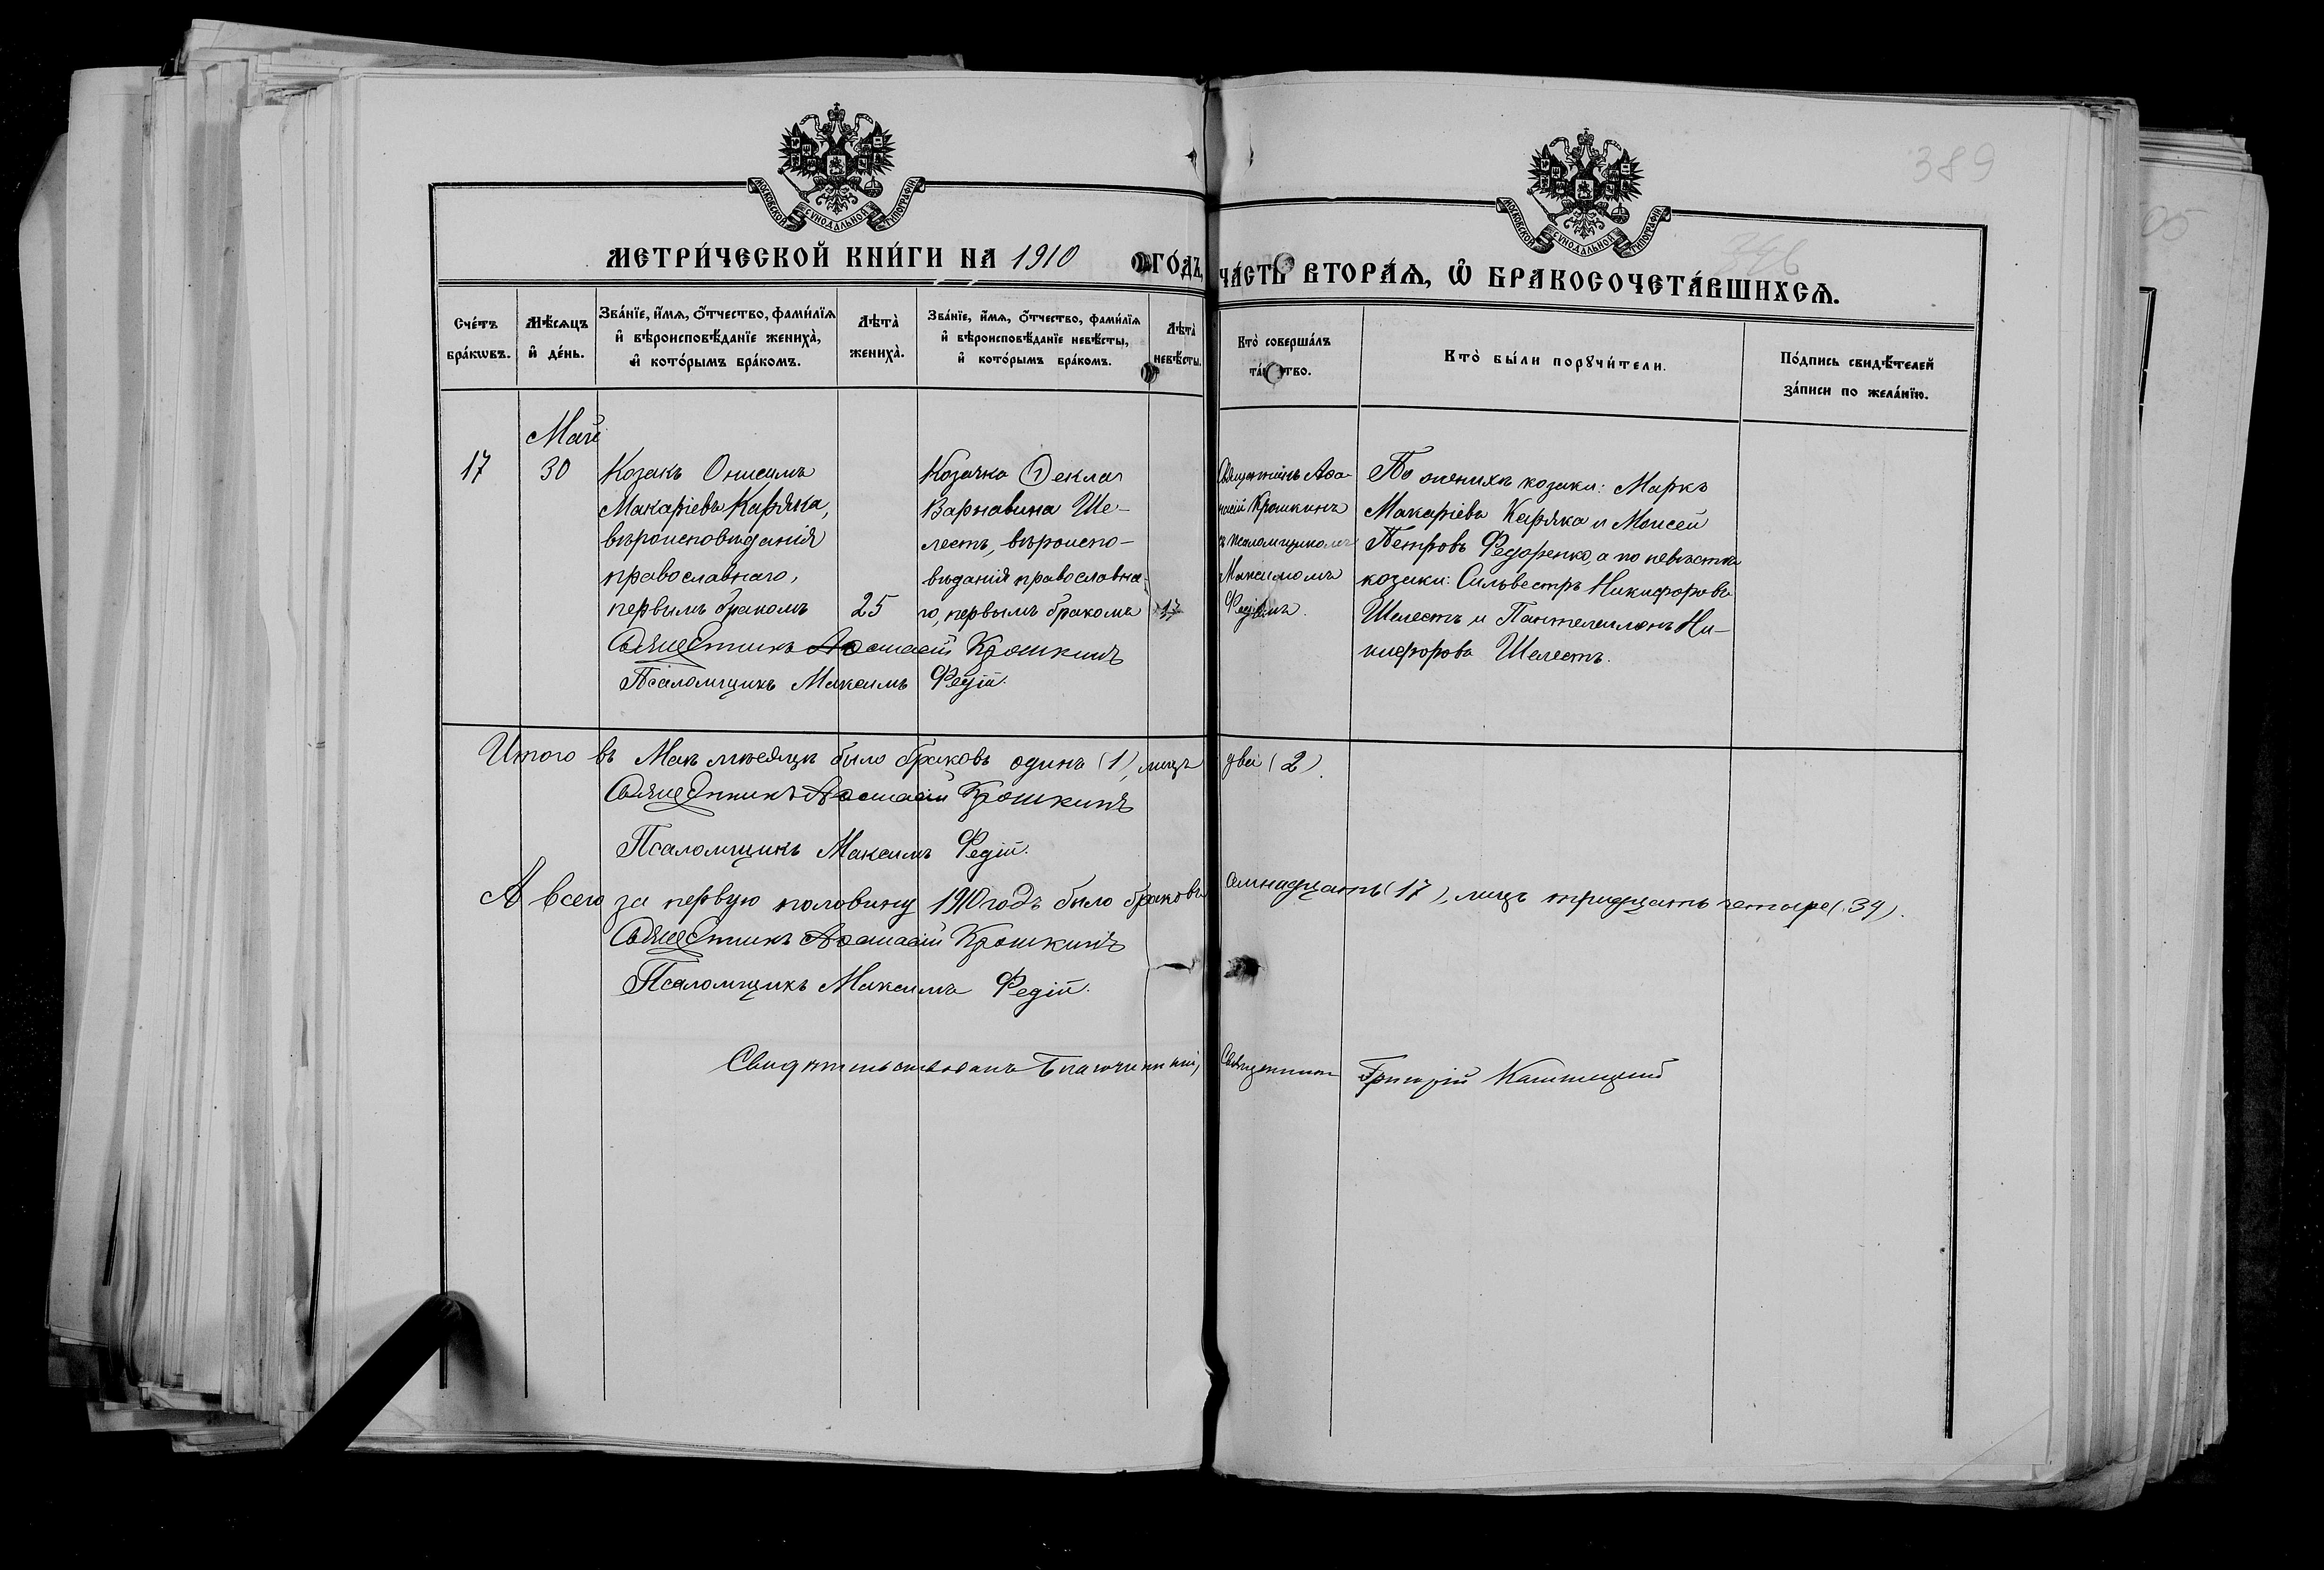 389
346
МОСКОВСКОЙ СѴНОДАЛЬНОЙ ТИПОГРАФІИ
МОСКОВСКОЙ СѴНОДАЛЬНОЙ ТИПОГРАФІИ
МЕТРИ́ЧЕСКОЙ КНИ́ГИ НА 1910 ГО́ДЪ,
ЧА́СТЬ ВТОРА́Ѧ, Ѽ БРАКОСОЧЕТА́ВШИХСѦ.
Сче́тъ
бра́кѡвъ.
Мѣ́сяцъ
и҆ де́нь.
Зва́нїе, и҆́мѧ, ѻ҆́тчество, фами́лїѧ
и҆ вѣроисповѣ́данїе жениха̀,
и҆ кото́рымъ бра́комъ.
Лѣта̀
жениха̀.
Зва́нїе, и҆́мѧ, ѻ҆́тчество, фами́лїѧ
и҆ вѣроисповѣ́данїе невѣ́сты,
и҆ кото́рымъ бра́комъ.
Лѣта̀
невѣ́сты.
Кто̀ соверша́лъ
та́ ство.
Кто̀ бы́ли порꙋчи́тели.
По́дпись свидѣ́телей
за́писи по жела́нїю.
Май
17
30
Козакъ Онисимъ
Макаріевъ Каряка,
вѣроисповѣданія
православнаго,
первымъ бракомъ
25
Козачка Ѳекла
Варнавина Ше-
лестъ, вѣроиспо-
вѣданія православна-
го, первымъ бракомъ
17
Священникъ Аѳа-
насій Крошкинъ
съ псаломщикомъ
Максимомъ
Федіемъ.
По женихѣ козаки: Маркъ
Макаріевъ Каряка и Моисей
Петровъ Федоренко, а по невѣстѣ
козаки: Сильвестръ Никифоровъ
Шелестъ и Пантелеимонъ Ни-
кифоровъ Шелестъ.
Священникъ Аѳанасій Крошкинъ
Псаломщикъ Максимъ Федій.
Итого въ Маѣ мѣсяцѣ было браковъ одинъ (1), лицъ два (2).
Священникъ Аѳанасій Крошкинъ
Псаломщикъ Максимъ Федій.
А всего за первую половину 1910 года было браковъ семнадцать (17), лицъ тридцать четыре (34).
Священникъ Аѳанасій Крошкинъ
Псаломщикъ Максимъ Федій.
Свидѣтельствовалъ Благочинный, Священникъ Григорій